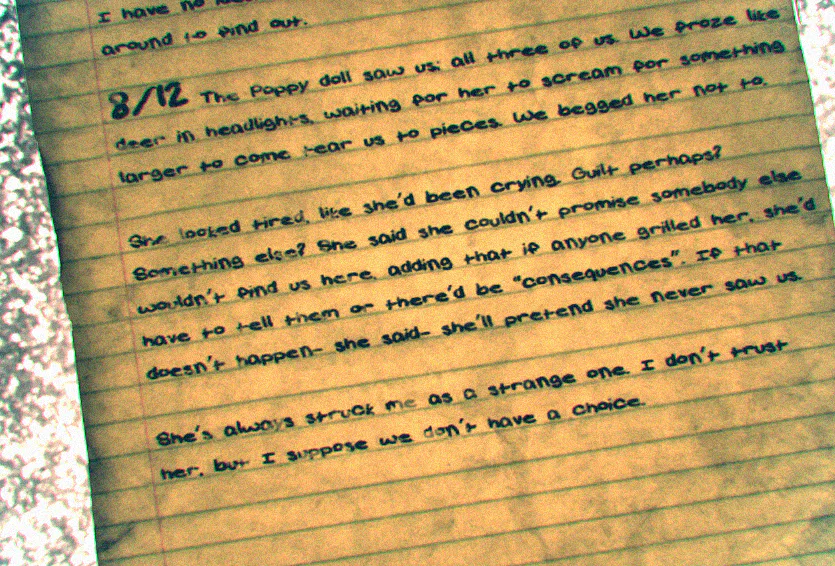 I have no
around to find out.
8/12 The Poppy doll saw us; all three of us. We froze like
deer in headlights, waiting for her to scream for something
larger to come tear us to pieces. We begged her not to.
She looked tired, like she'd been crying. Guilt perhaps?
Something else? She said she couldn't promise somebody else
wouldn't find us here, adding that if anyone grilled her, she'd
have to tell them or there'd be "consequences". If that
doesn't happen- she said- she'll pretend she never saw us.
She's always struck me as a strange one. I don't trust
her, but I suppose we don't have a choice.